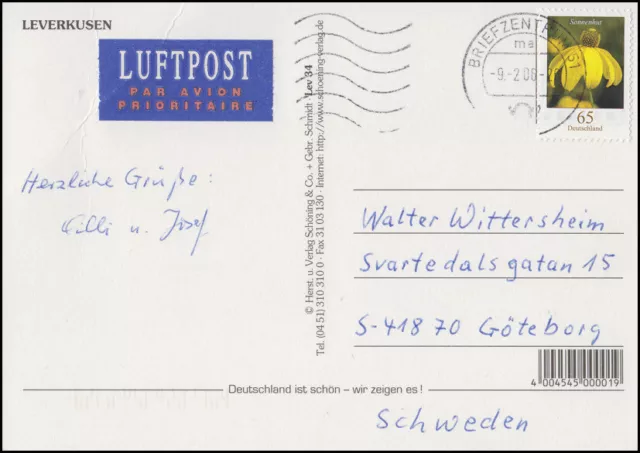 LEVERKUSEN
LUFTPOST
PAR AVION
PRIORITAIRE
Herzliche Grüße:
Cilli u. Josef
© Herst. u. Verlag Schöning & Co. + Gebr. Schmidt Lev 34
Tel. (04 51) 310 310 0 · Fax 31 03 130 · Internet: http://www.schoening-verlag.de
BRIEFZENTR
51
ma
-9.-2.06-
Sonnenhut
65
Deutschland
Walter Wittersheim
Svartedalsgatan 15
S-41870 Göteborg
Schweden
4 004545 000019
Deutschland ist schön – wir zeigen es!